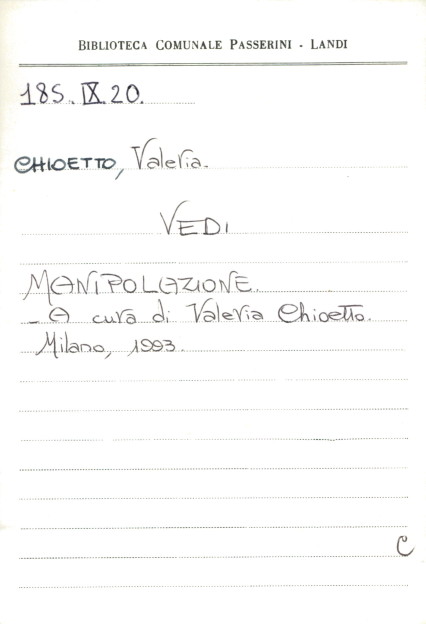 BIBLIOTECA COMUNALE PASSERINI - LANDI
185. IX. 20.
CHIOETTO, Valeria.
VEDI
MANIPOLAZIONE.
- A cura di Valeria Chioetto.
Milano, 1993.
C